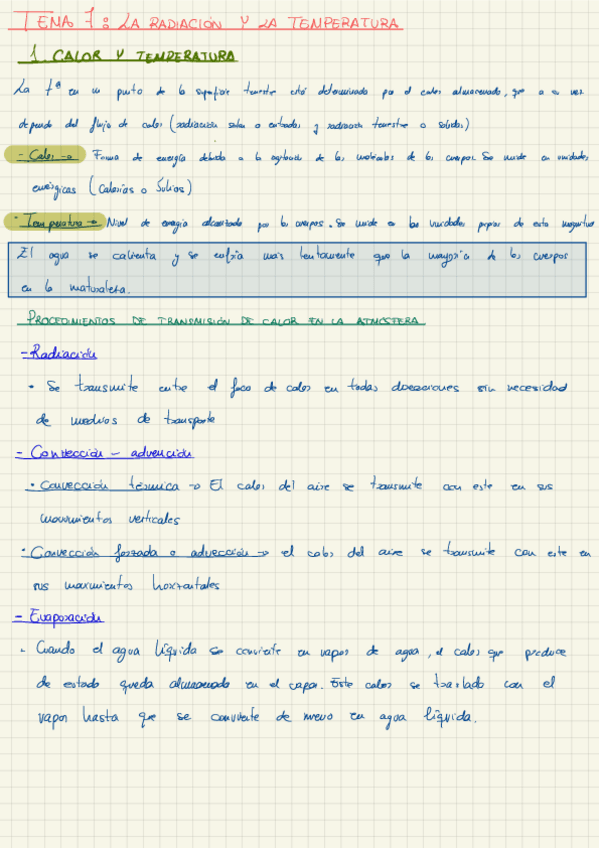 TEMA 7: LA RADIACIÓN Y LA TEMPERATURA
1. CALOR Y TEMPERATURA
La tª en un punto de la superficie terrestre está determinada por el calor almacenado, que a su vez
depende del flujo de calor (radiación solar o entradas, y radiación terrestre o salidas)
- Calor → Forma de energía debida a la agitación de las moléculas de los cuerpos. Se mide en unidades
energéticas (Calorías o Julios)
· Temperatura → Nivel de energía alcanzado por los cuerpos. Se mide en las unidades propias de esta magnitud
El agua se calienta y se enfría más lentamente que la mayoría de los cuerpos
en la naturaleza.
PROCEDIMIENTOS DE TRANSMISIÓN DE CALOR EN LA ATMOSFERA
- Radiación
· Se transmite entre el foco de calor en todas direcciones sin necesidad
de medios de transporte
- Convección - advección
· Convección térmica → El calor del aire se transmite con este en sus
movimientos verticales
· Convección forzada o advección → el calor del aire se transmite con este en
sus movimientos horizontales
- Evaporación
· Cuando el agua líquida se convierte en vapor de agua, el calor que produce
de estado queda almacenado en el vapor. Este calor se traslada con el
vapor hasta que se convierte de nuevo en agua líquida.